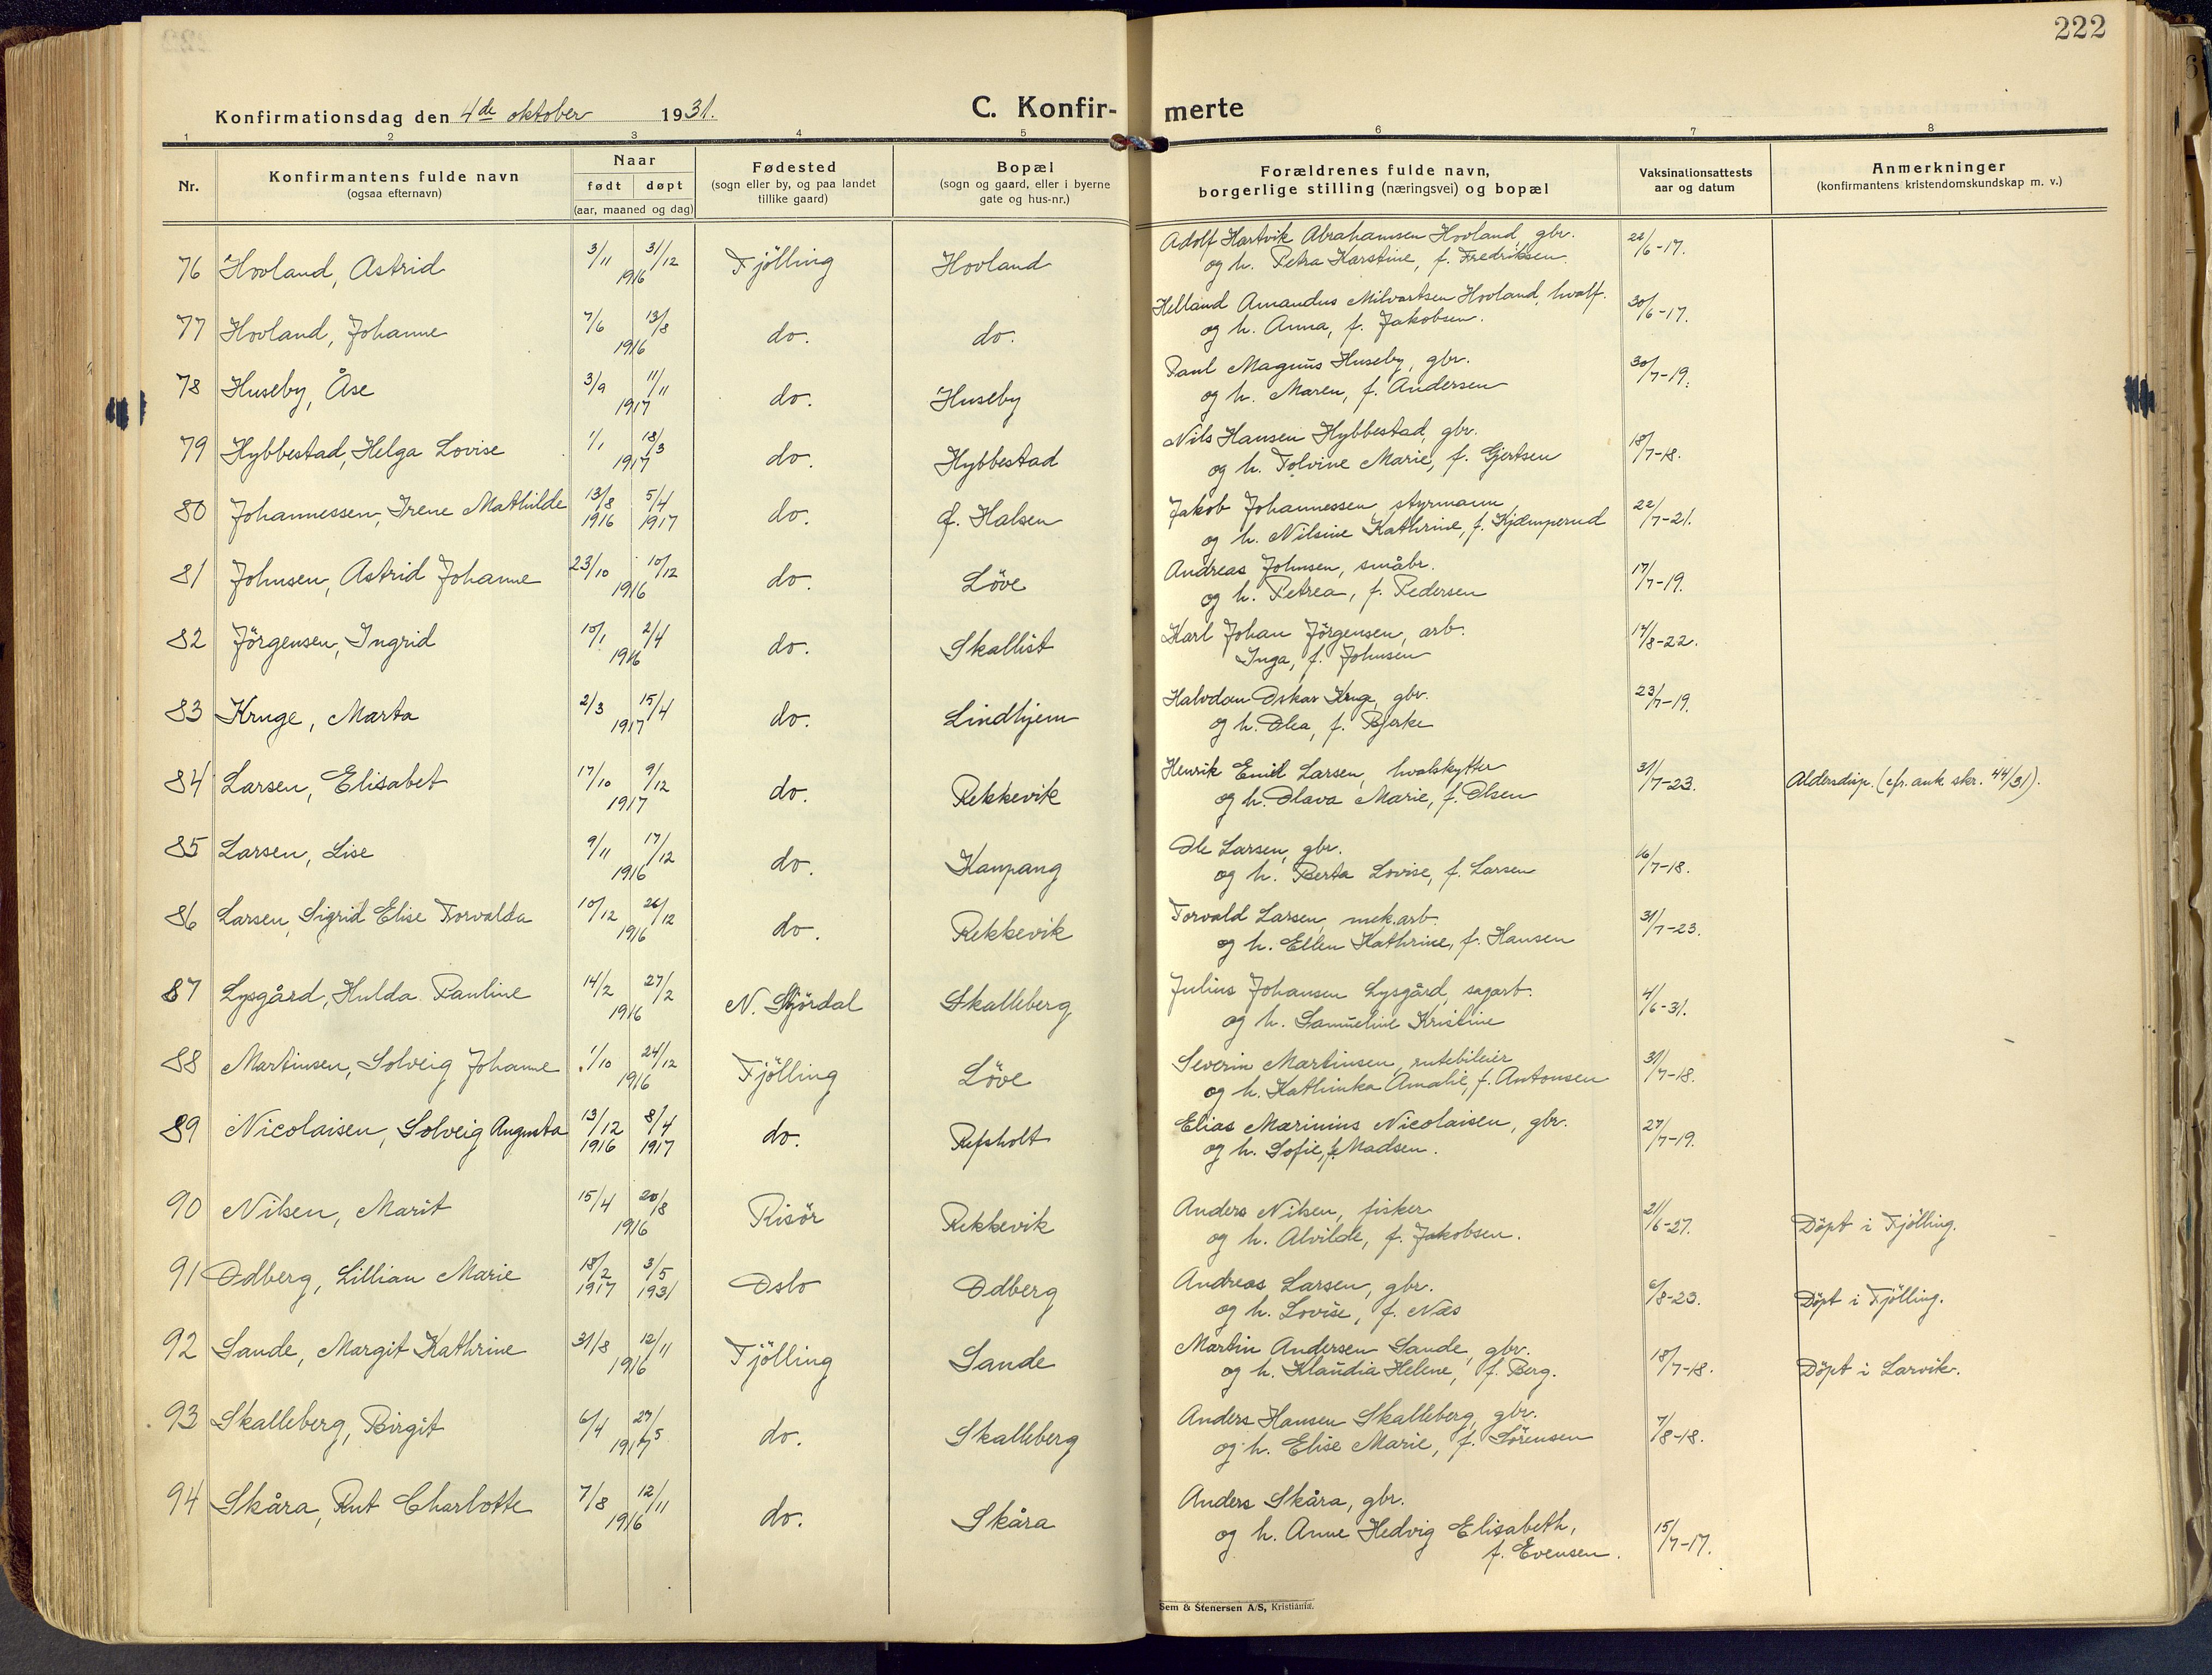 222
Konfirmationsdag den 4de oktober 1931.
C. Konfirmerte
1 2 3 4 5 6 7 8
Nr. Konfirmantens fulde navn (ogsaa efternavn) Naar født døpt (aar, maaned og dag) Fødested (sogn eller by, og paa landet tillike gaard) Bopæl (sogn og gaard, eller i byerne gate og hus-nr.) Forældrenes fulde navn, borgerlige stilling (næringsvei) og bopæl Vaksinationsattests aar og datum Anmerkninger (konfirmantens kristendomskundskap m. v.)
76 Hovland, Astrid 3/11 31/12 1916 Fjölling Hovland Adolf Hartvik Abrahamsen Hovland, gbr. 22/6-17.
og h. Petra Karstine, f. Fredriksen.
77 Hovland, Johanne 7/6 13/8 1916 do. do. Helland Amandus Milvartsen Hovland, hvalf. 30/6-17.
og h. Anna, f. Jakobsen.
78 Huseby, Åse 3/9 11/11 1917 do. Huseby Paul Magnus Huseby, gbr. 30/7-19.
og h. Maren, f. Andersen
79 Hybbestad, Helga Lovise 1/1 18/3 1917 do. Hybbestad Nils Hansen Hybbestad, gbr. 18/7-18.
og h. Tolvine Marie, f. Gjertsen
80 Johannessen, Irene Mathilde 13/8 1916 5/4 1917 do. Halsen Jakob Johannessen, styrmann 22/7-21.
og h. Nilsine Kathrine, f. Kjæmperud
81 Johnsen, Astrid Johanne 23/10 10/12 1916 do. Löve Andreas Johnsen, småbr. 17/7-19.
og h. Petrea, f. Pedersen
82 Jörgensen, Ingrid 10/1 2/4 1916 do. Skallist Karl Johan Jörgensen, arb. 12/8-22.
Inga, f. Johnsen
83 Kruge, Marta 2/3 15/4 1917 do. Lindhjem Halvdan Oskar Kruge, gbr. 23/7-19.
og h. Olea, f. Bjerke
84 Larsen, Elisabet 17/10 9/12 1917 do. Rekkevik Henrik Emil Larsen, hvalskytter 31/7-23. Aldersdisp. (cfr. ank skr. 44/31).
og h. Olava Marie, f. Olsen
85 Larsen, Lise 9/11 17/12 1916 do. Kaupang Ole Larsen, gbr. 16/7-18.
og h. Berta Lovise, f. Larsen
86 Larsen, Sigrid Elise Torvalda 10/12 26/12 1916 do. Rekkevik Torvald Larsen, mek.arb. 31/7-23.
og h. Ellen Kathrine, f. Hansen
87 Lysgård, Hulda Pauline 14/2 27/2 1916 N. Stjördal Skalleberg Julius Johansen Lysgård, sagarb. 4/6-31.
og h. Samueline Kristine
88 Martinsen, Solveig Johanne 1/10 24/12 1916 Fjölling Löve Severin Martinsen, rutebileier 31/7-18.
og h. Kathinka Amalie, f. Antonsen
89 Nicolaisen, Solveig Augusta 13/12 1916 8/4 1917 do. Refsholt Elias Marinius Nicolaisen, gbr. 27/7-19.
og h. Sofie, f. Madsen.
90 Nilsen, Marit 15/4 20/8 1916 Risör Rekkevik Anders Nilsen, fisker 21/6-27. Döpt i Fjölling.
og h. Alvilde, f. Jakobsen.
91 Odberg, Lillian Marie 18/2 1917 3/5 1931 Oslo Odberg Andreas Larsen, gbr. 6/8-23. Döpt i Fjölling.
og h. Lovise, f. Næs
92 Sande, Margit Kathrine 31/8 12/11 1916 Fjölling Sande Martin Andersen Sande, gbr. 18/7-18. Döpt i Larvik.
og h. Klaudia Helene, f. Berg.
93 Skalleberg, Birgit 6/4 27/5 1917 do. Skalleberg Anders Hansen Skalleberg, gbr. 7/8-18.
og h. Elise Marie, f. Sörensen
94 Skåra, Rut Charlotte 7/8 12/11 1916 do. Skåra Anders Skåra, gbr. 15/7-17.
og h. Anne Hedvig Elisabeth,
f. Evensen.
Sem & Stenersen A/S, Kristiania.